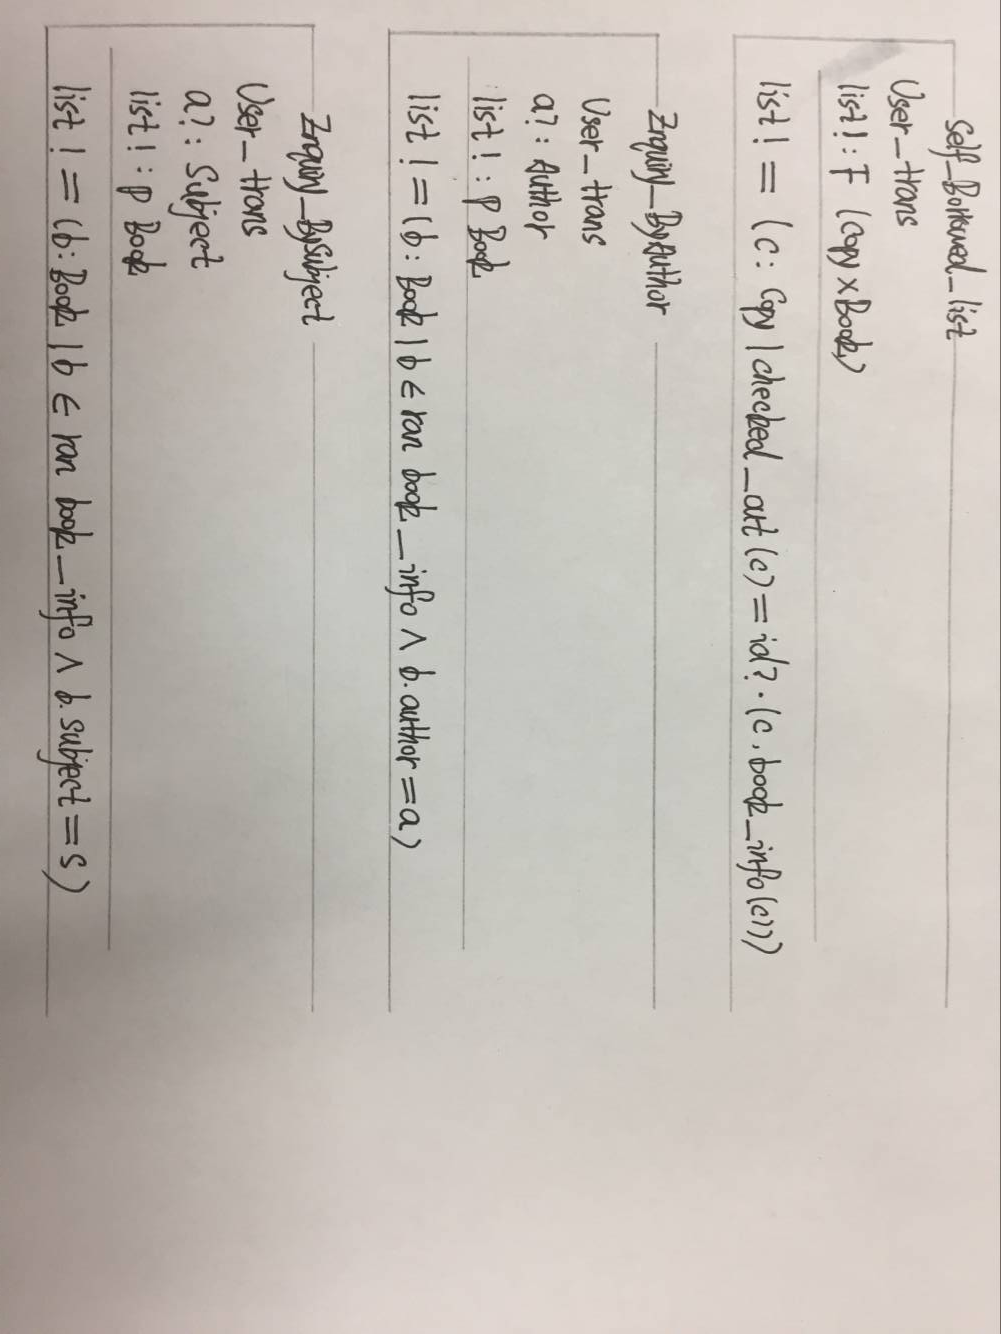 Self_Borrowed_list
User_trans
list!: F (Copy × Book)
list! = (c: Copy | checked_out (c) = id? · (c, book_info(c)))
Inquiry_ByAuthor
User_trans
a?: Author
list!: P Book
list! = (b: Book | b ∈ ran book_info ∧ b.author = a)
Inquiry_BySubject
User_trans
a?: Subject
list!: P Book
list! = (b: Book | b ∈ ran book_info ∧ b.subject = s)